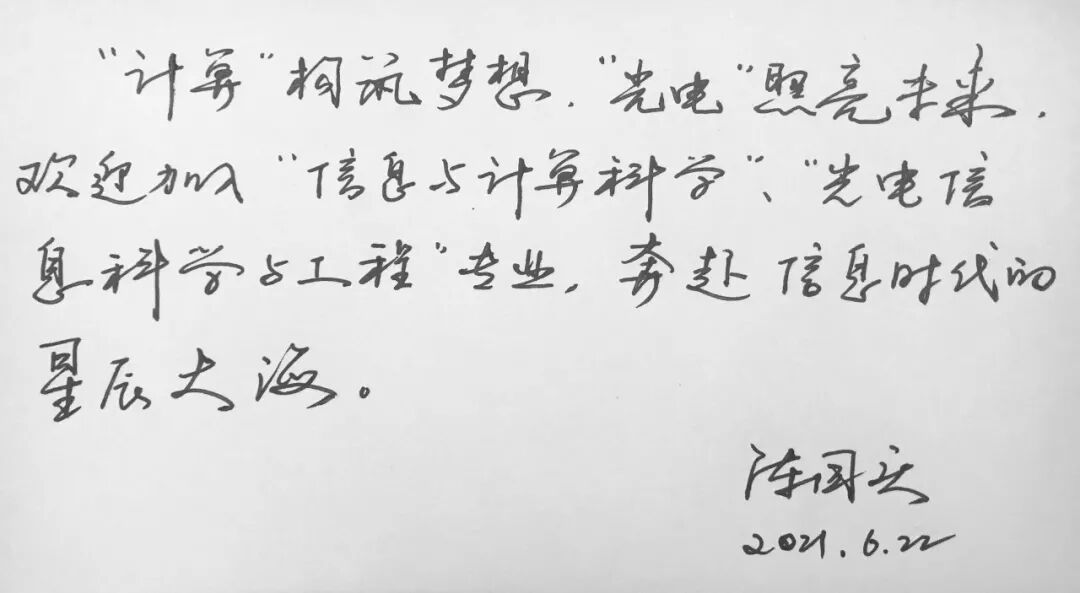 “计算”构筑梦想，“光电”照亮未来，
欢迎加入“信息与计算科学”、“光电信
息科学与工程”专业，奔赴信息时代的
星辰大海。
陈国庆
2021.6.22